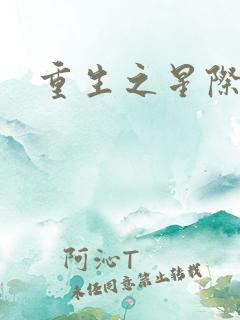 重生之星際
阿沁T
未经同意禁止转载